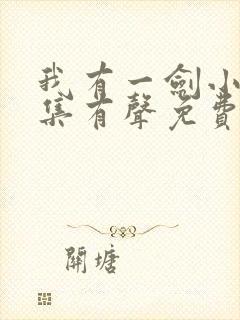 我有一劍小
集有聲免費
開塘